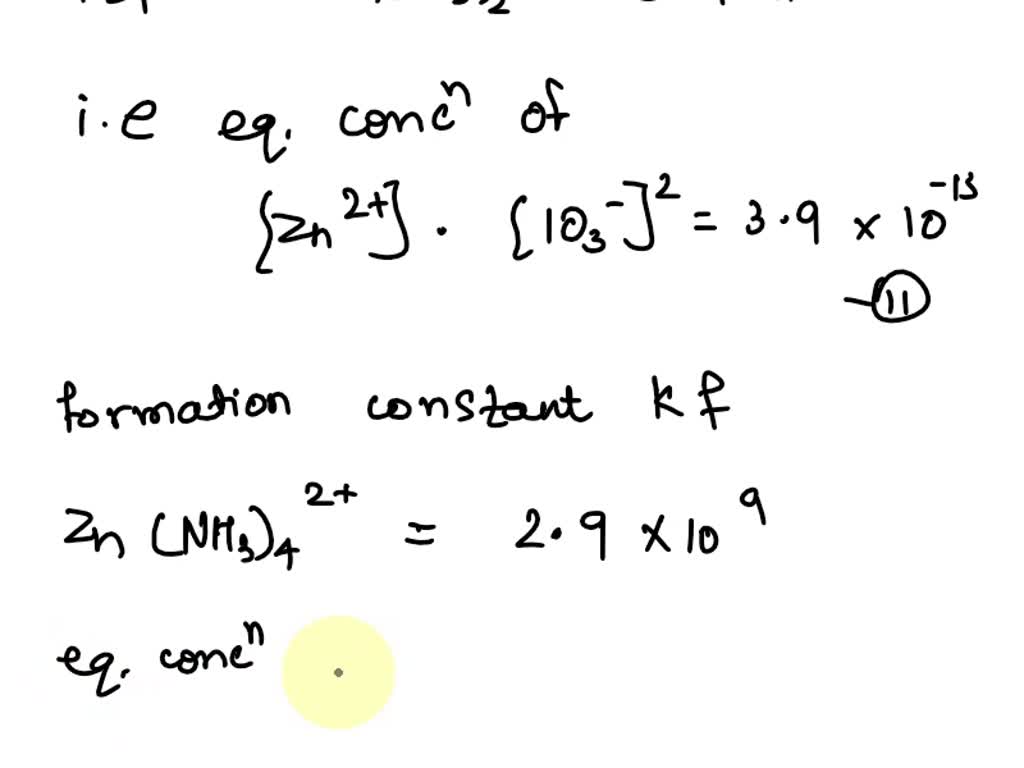 i.e eq. concⁿ of
[Zn²⁺] · [IO₃⁻]² = 3.9 × 10⁻¹³
—⑪
formation constant kf
Zn(NH₃)₄²⁺ = 2.9 × 10⁹
eq. concⁿ